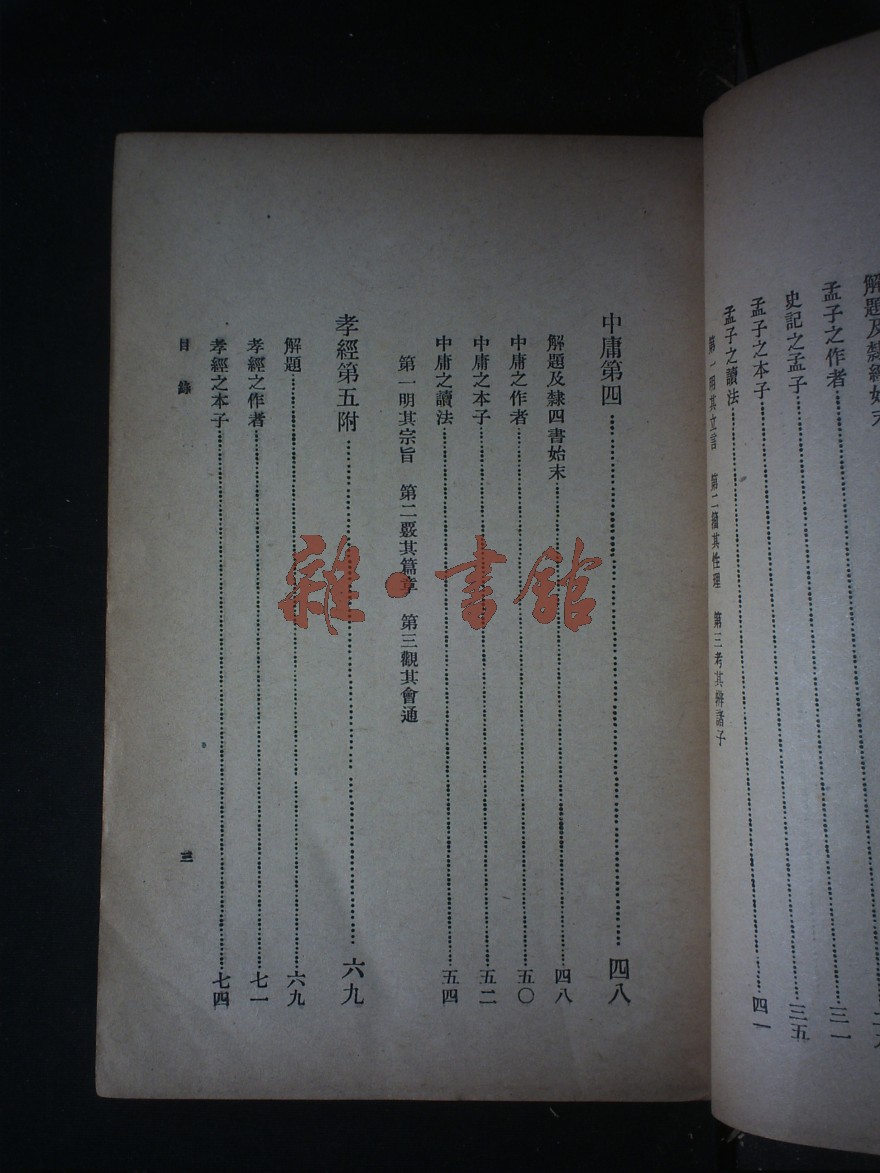 解題及隸經始末
孟子之作者 三一
史記之孟子 三五
孟子之本子
孟子之讀法 四一
第一明其立言 第二籀其性理 第三考其辨諸子
中庸第四 四八
解題及隸四書始末 四八
中庸之作者 五〇
中庸之本子 五二
中庸之讀法 五四
第一明其宗旨 第二覈其篇章 第三觀其會通
孝經第五附 六九
解題 六九
孝經之作者 七一
孝經之本子 七四
目錄 三
雜·書館